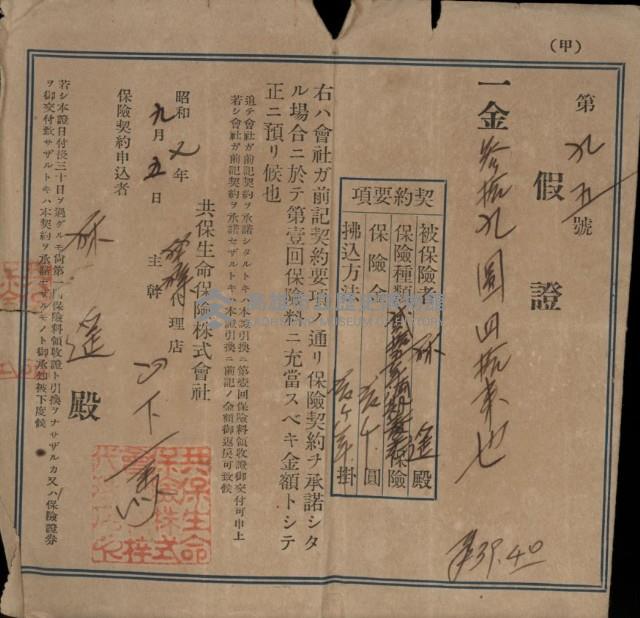 (甲)
第九五號
假證
一金參拾九圓四拾錢也
¥39.40
契約要項
被保險者 殿
保險種類 保險
保險金 圓
拂込方法 掛
右ハ會社ガ前記契約要項ノ通リ保險契約ヲ承諾シタ
ル場合ニ於テ第壹回保險料ニ充當スベキ金額トシテ
正ニ預リ候也
追テ會社ガ前記契約ヲ承諾シタルトキハ本證引換ニ第壹回保險料領收證御交付可申上
若シ會社ガ前記契約ヲ承諾セザルトキハ本證引換ニ前記ノ金額御返戻可致候
共保生命保險株式會社
昭和 年
九月五日
代理店
主幹
山下
保險契約申込者
殿
若シ本證日付後三十日ヲ過グルモ尚第一回保險料領收證ト引換ヲナサザルカ又ハ保險證券
ヲ御交付致サザルトキハ本契約ヲ承諾セザルモノト御承知被下度候
共保生命
保險株式
高雄市立歷史博物館
KAOHSIUNG MUSEUM OF HISTORY